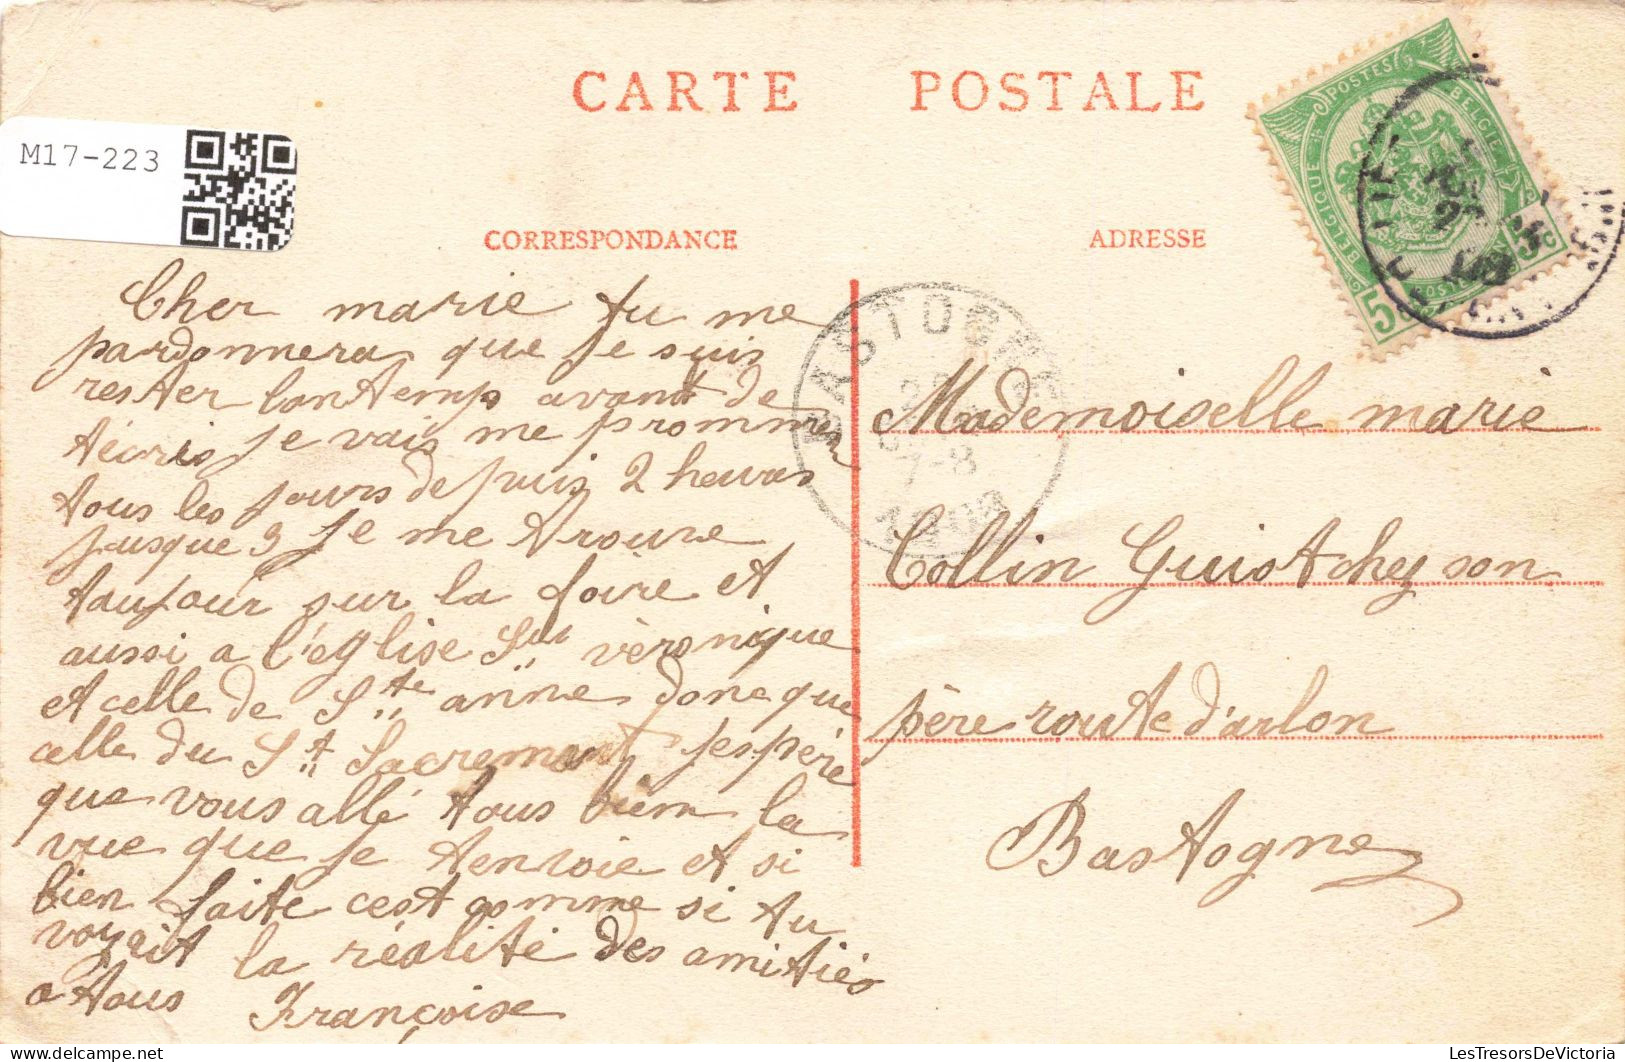 CARTE POSTALE
M17-223
POSTES
BELGIQUE
BELGIE
5c
5c
CORRESPONDANCE
ADRESSE
Cher marie tu me
pardonnera que je suis
rester lontemp avant de
técris je vais me prommner
tous les jours depuis 2 heures
jusque 3 je me trouve
toujour sur la foire et
aussi a l'église Ste vèronique
et celle de Ste anne donc que
celle du St Sacrement jespère
que vous allé tous bien la
vue que je tenvoie et si
bien faite cest comme si tu
voyait la réalité des amitiés
a tous Françoise
BASTOGNE
7-8
Mademoiselle marie
Collin Guiot chez son
père route d'arlon
Bastogne
LesTresorsDeVictoria.com